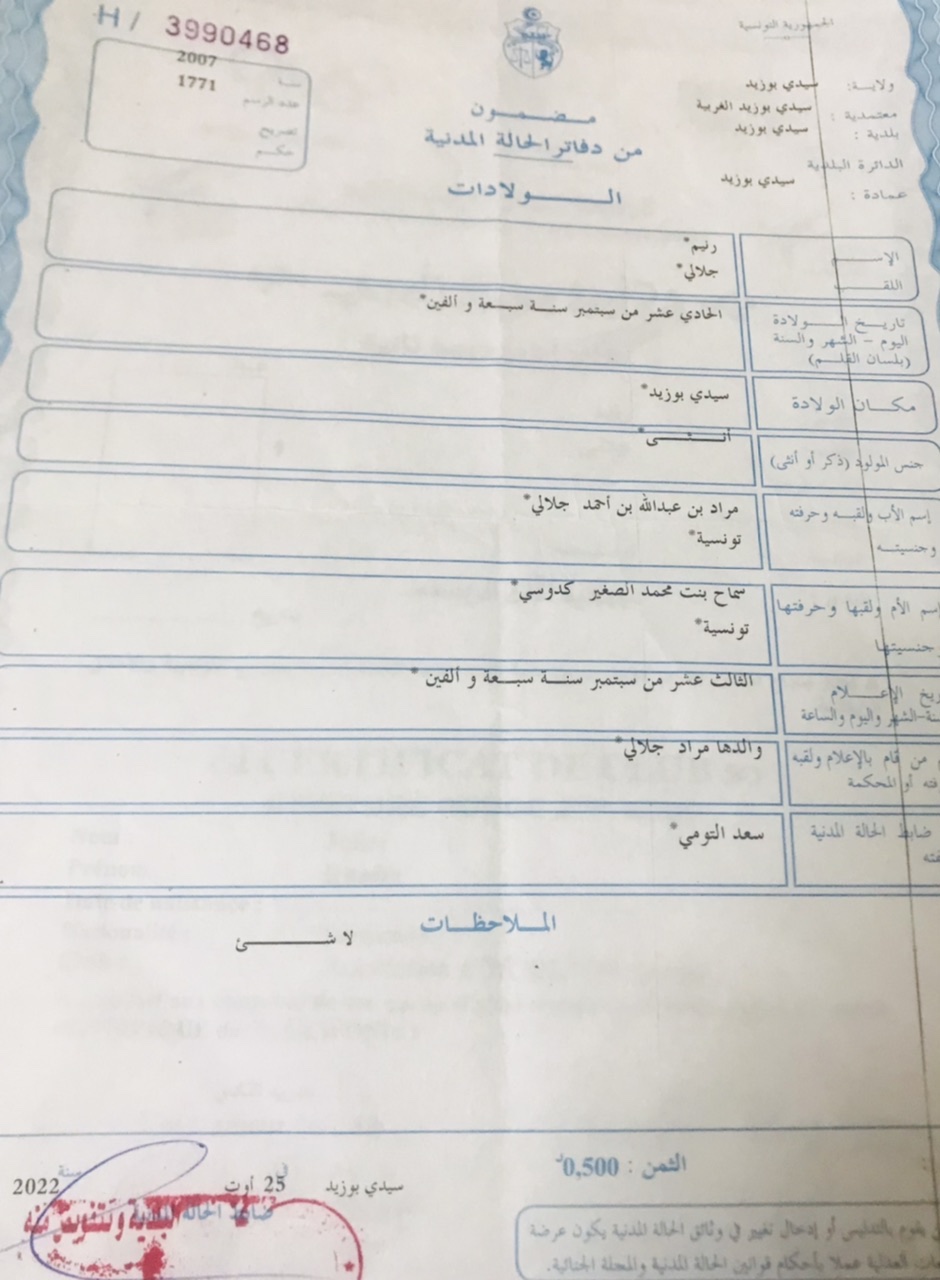 H / 3990468
الجمهورية التونسية
سنة 2007
عدد الرسم 1771
تصريح
حكم
ولاية: سيدي بوزيد
معتمدية : سيدي بوزيد الغربية
بلدية : سيدي بوزيد
الدائرة البلدية
عمادة : سيدي بوزيد
مضمون
من دفاتر الحالة المدنية
الولادات
الإسم رنيم*
اللقب جلالي*
تاريخ الولادة الحادي عشر من سبتمبر سنة سبعة و ألفين*
اليوم - الشهر والسنة
(بلسان القلم)
مكان الولادة سيدي بوزيد*
جنس المولود (ذكر أو أنثى) أنثى*
إسم الأب ولقبه وحرفته مراد بن عبدالله بن أحمد جلالي*
وجنسيته تونسية*
سم الأم ولقبها وحرفتها سماح بنت محمد الصغير كدوسي*
جنسيتها تونسية*
ريخ الإعلام الثالث عشر من سبتمبر سنة سبعة و ألفين *
نة-الشهر واليوم والساعة
من قام بالإعلام ولقبه والدها مراد جلالي*
فته أو المحكمة
ضابط الحالة المدنية سعد التومي*
الملاحظات
لا شئ
الثمن : 0,500د
سيدي بوزيد في 25 أوت سنة 2022
ضابط الحالة المدنية
وبتفويض منه
يقوم بالتدليس أو إدخال تغيير في وثائق الحالة المدنية يكون عرضة
ات العدلية عملا بأحكام قوانين الحالة المدنية والمجلة الجنائية.